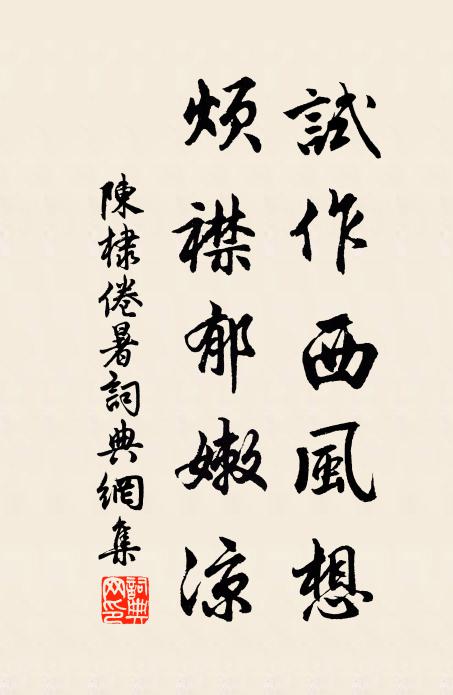 試作西風想
煩襟郁嫩涼
陳棣倦暑詞典網集